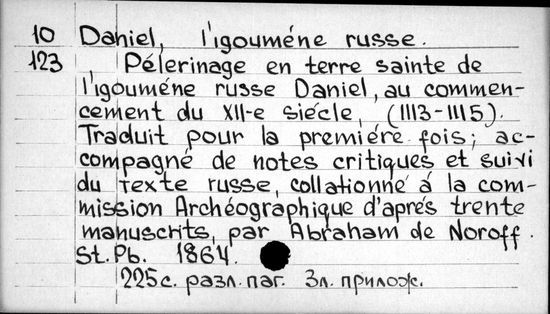 10 Daniel, l'igouméne russe.
123 Pélerinage en terre sainte de
l'igouméne russe Daniel, au commen-
cement du XII-e siécle, (1113-1115).
Traduit pour la premiére fois; ac-
compagné de notes critiques et suivi
du texte russe, collationné á la com-
mission Archéographique d'aprés trente
manuscrits, par Abraham de Noroff.
St. Pb. 1864.
225 с. разл. паг. 3л. прилож.